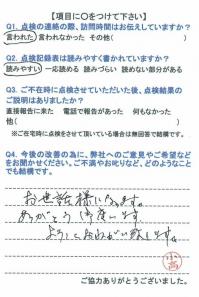 【項目に○をつけて下さい】
Q1. 点検の連絡の際、訪問時間はお伝えしていますか?
言われた 言われなかった その他( )
Q2. 点検記録表は読みやすく書かれていますか?
読みやすい 一応読める 読みづらい 読めない部分がある
Q3. ご不在時に点検させていただいた後、点検結果の
ご説明はありましたか?
直接報告に来た 電話で報告があった 何もなかった
他( )
※ご在宅時に点検をさせて頂いている場合は無回答で結構です。
Q4. 今後の改善の為に、弊社へのご意見やご希望など
をお聞かせください。ご不満やお叱りなど、どのようなこと
でも結構です。
お世話様になります。
ありがとう御座います
よろしくお願い致します。
小高
ご協力ありがとうございました。